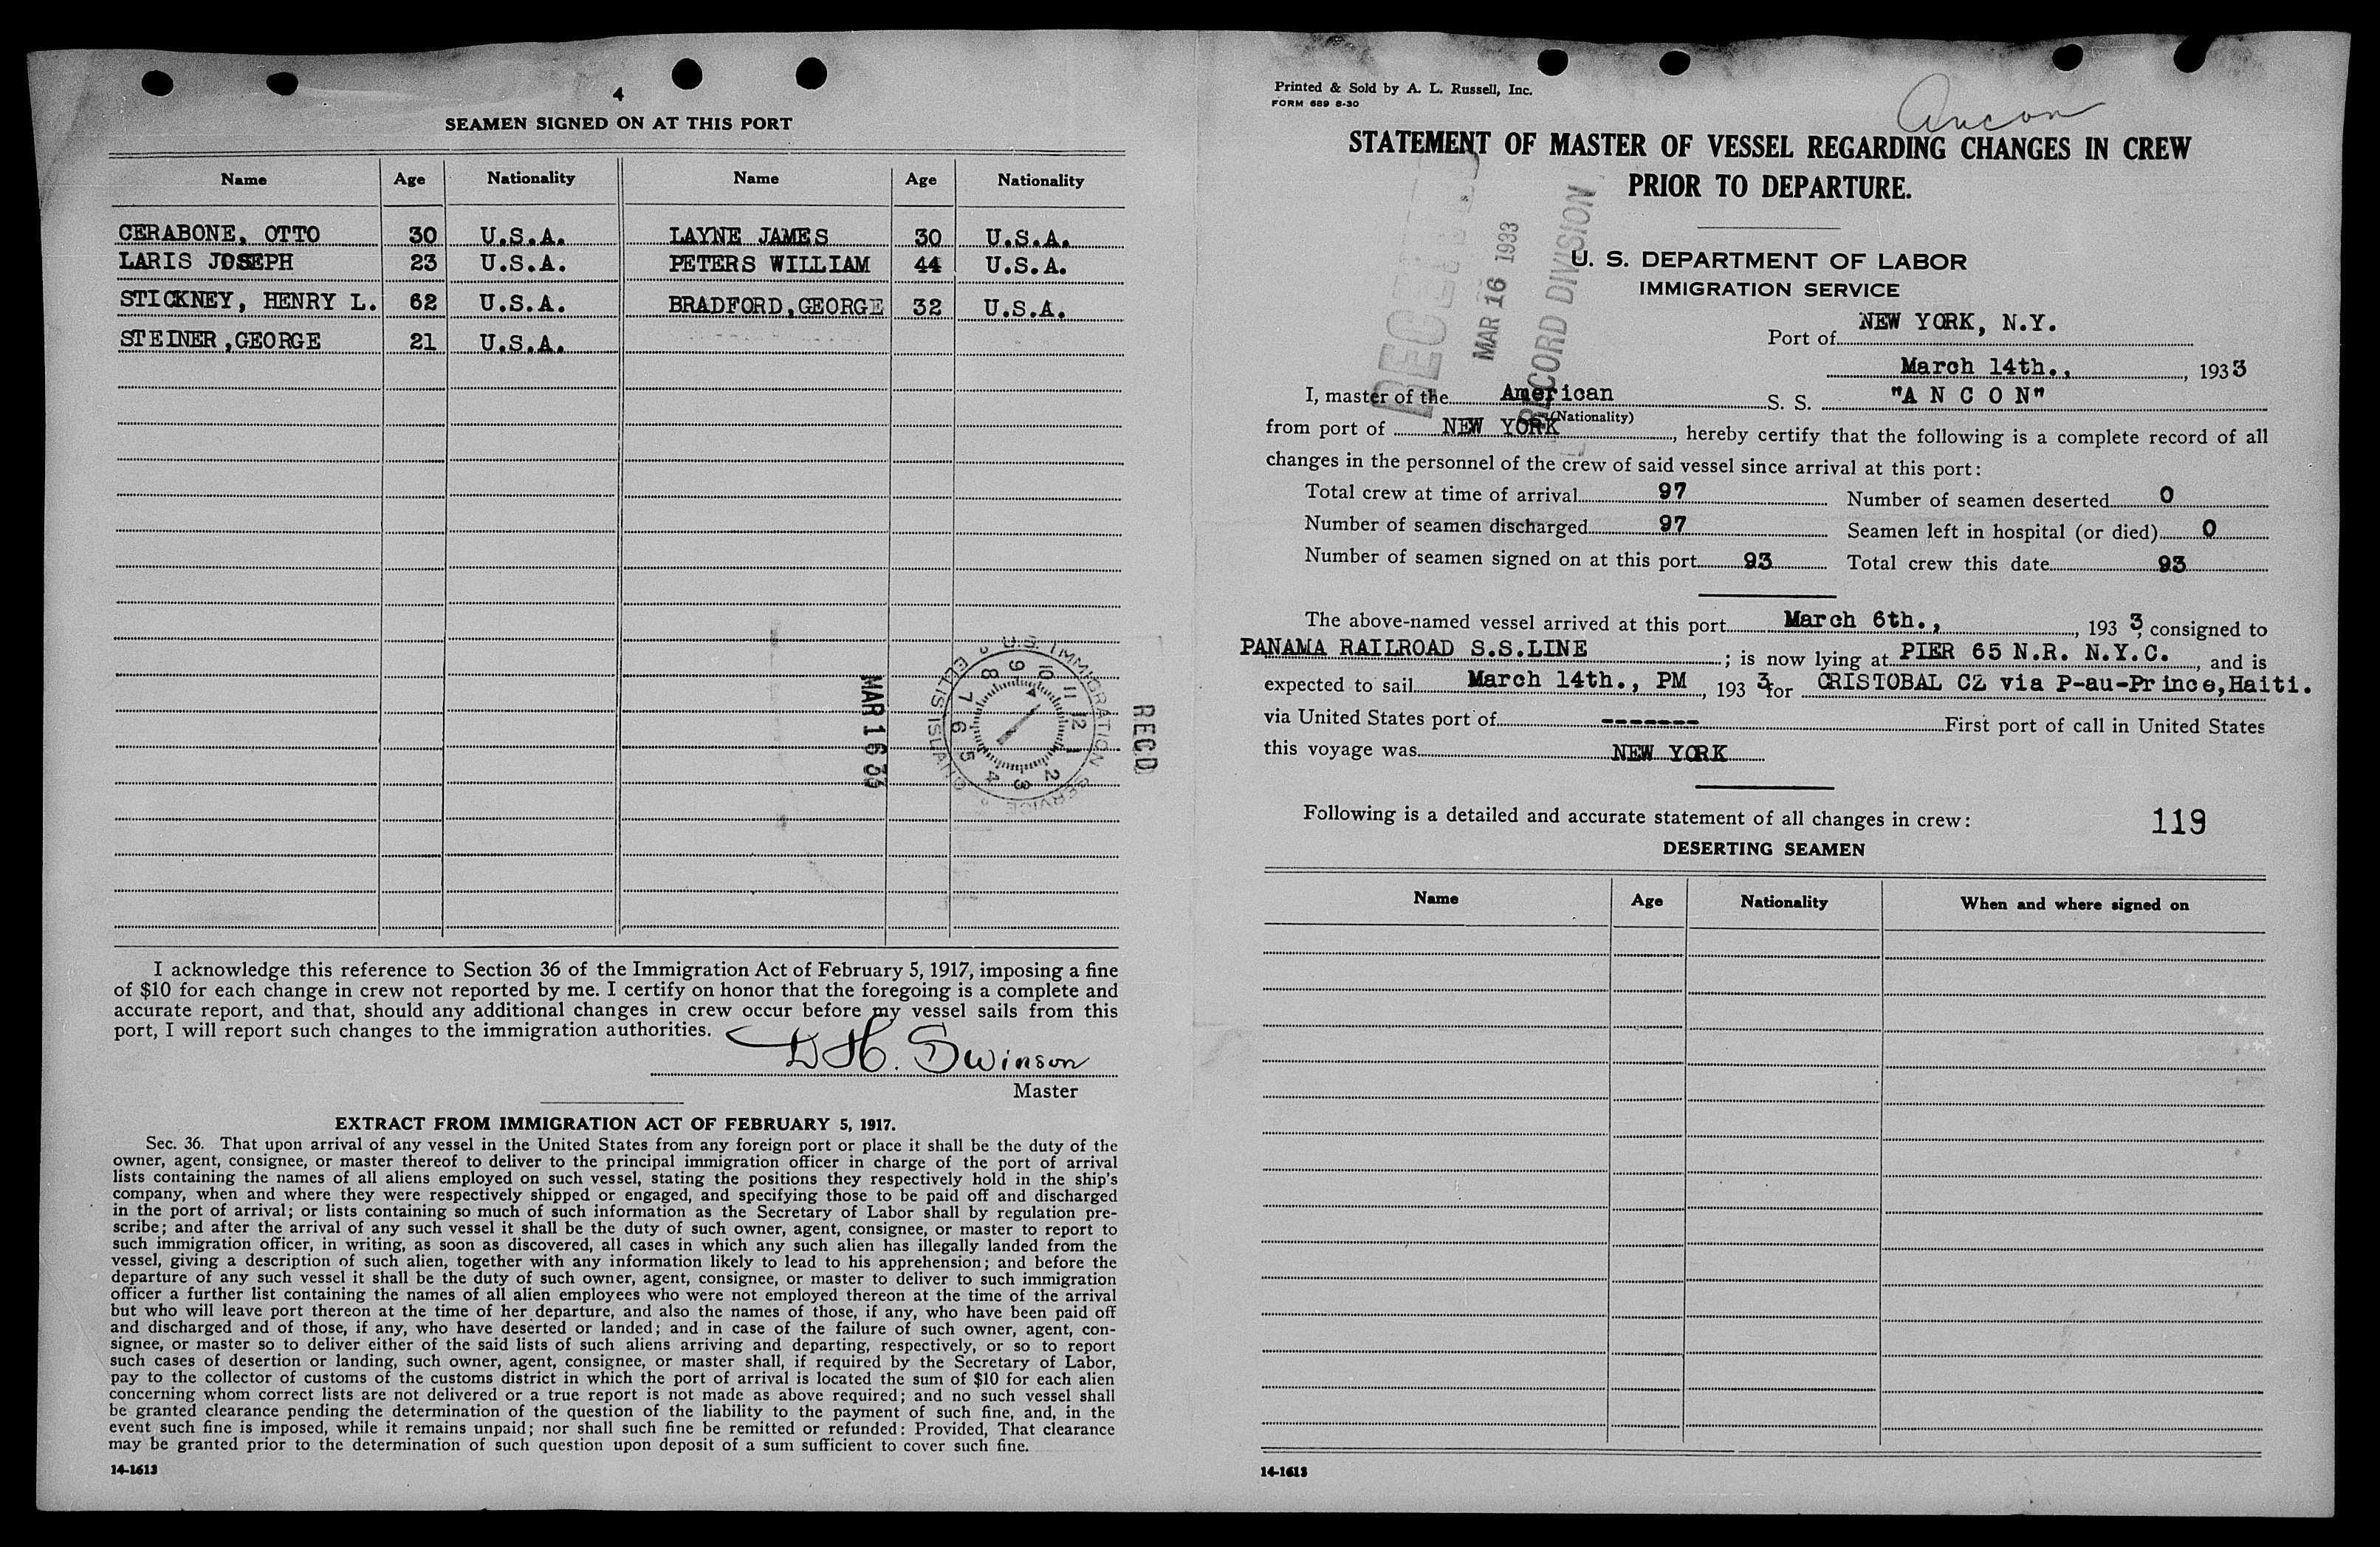 4
SEAMEN SIGNED ON AT THIS PORT
Name Age Nationality Name Age Nationality
CERABONE, OTTO 30 U.S.A. LAYNE JAMES 30 U.S.A.
LARIS JOSEPH 23 U.S.A. PETERS WILLIAM 44 U.S.A.
STICKNEY, HENRY L. 62 U.S.A. BRADFORD,GEORGE 32 U.S.A.
STEINER,GEORGE 21 U.S.A.
MAR 16 33
U.S. IMMIGRATION SERVICE
ELLIS ISLAND
1 2 3 4 5 6 7 8 9 10 11 12
RECD
I acknowledge this reference to Section 36 of the Immigration Act of February 5, 1917, imposing a fine
of $10 for each change in crew not reported by me. I certify on honor that the foregoing is a complete and
accurate report, and that, should any additional changes in crew occur before my vessel sails from this
port, I will report such changes to the immigration authorities.
D H. Swinson
Master
EXTRACT FROM IMMIGRATION ACT OF FEBRUARY 5, 1917.
Sec. 36. That upon arrival of any vessel in the United States from any foreign port or place it shall be the duty of the
owner, agent, consignee, or master thereof to deliver to the principal immigration officer in charge of the port of arrival
lists containing the names of all aliens employed on such vessel, stating the positions they respectively hold in the ship's
company, when and where they were respectively shipped or engaged, and specifying those to be paid off and discharged
in the port of arrival; or lists containing so much of such information as the Secretary of Labor shall by regulation pre-
scribe; and after the arrival of any such vessel it shall be the duty of such owner, agent, consignee, or master to report to
such immigration officer, in writing, as soon as discovered, all cases in which any such alien has illegally landed from the
vessel, giving a description of such alien, together with any information likely to lead to his apprehension; and before the
departure of any such vessel it shall be the duty of such owner, agent, consignee, or master to deliver to such immigration
officer a further list containing the names of all alien employees who were not employed thereon at the time of the arrival
but who will leave port thereon at the time of her departure, and also the names of those, if any, who have been paid off
and discharged and of those, if any, who have deserted or landed; and in case of the failure of such owner, agent, con-
signee, or master so to deliver either of the said lists of such aliens arriving and departing, respectively, or so to report
such cases of desertion or landing, such owner, agent, consignee, or master shall, if required by the Secretary of Labor,
pay to the collector of customs of the customs district in which the port of arrival is located the sum of $10 for each alien
concerning whom correct lists are not delivered or a true report is not made as above required; and no such vessel shall
be granted clearance pending the determination of the question of the liability to the payment of such fine, and, in the
event such fine is imposed, while it remains unpaid; nor shall such fine be remitted or refunded: Provided, That clearance
may be granted prior to the determination of such question upon deposit of a sum sufficient to cover such fine.
14-1613
Printed & Sold by A. L. Russell, Inc.
FORM 689 8-30
Ancon
STATEMENT OF MASTER OF VESSEL REGARDING CHANGES IN CREW
PRIOR TO DEPARTURE.
RECEIVED
MAR 16 1933
RECORD DIVISION
U. S. DEPARTMENT OF LABOR
IMMIGRATION SERVICE
Port of NEW YORK, N.Y.
March 14th., , 1933
I, master of the American S. S. "A N C O N"
(Nationality)
from port of NEW YORK , hereby certify that the following is a complete record of all
changes in the personnel of the crew of said vessel since arrival at this port:
Total crew at time of arrival 97 Number of seamen deserted 0
Number of seamen discharged 97 Seamen left in hospital (or died) 0
Number of seamen signed on at this port 93 Total crew this date 93
The above-named vessel arrived at this port March 6th., , 193 3, consigned to
PANAMA RAILROAD S.S.LINE ; is now lying at PIER 65 N.R. N.Y.C. , and is
expected to sail March 14th., PM , 193 3 for CRISTOBAL CZ via P-au-Prince,Haiti.
via United States port of ------- First port of call in United States
this voyage was NEW YORK
Following is a detailed and accurate statement of all changes in crew: 119
DESERTING SEAMEN
Name Age Nationality When and where signed on
14-1613